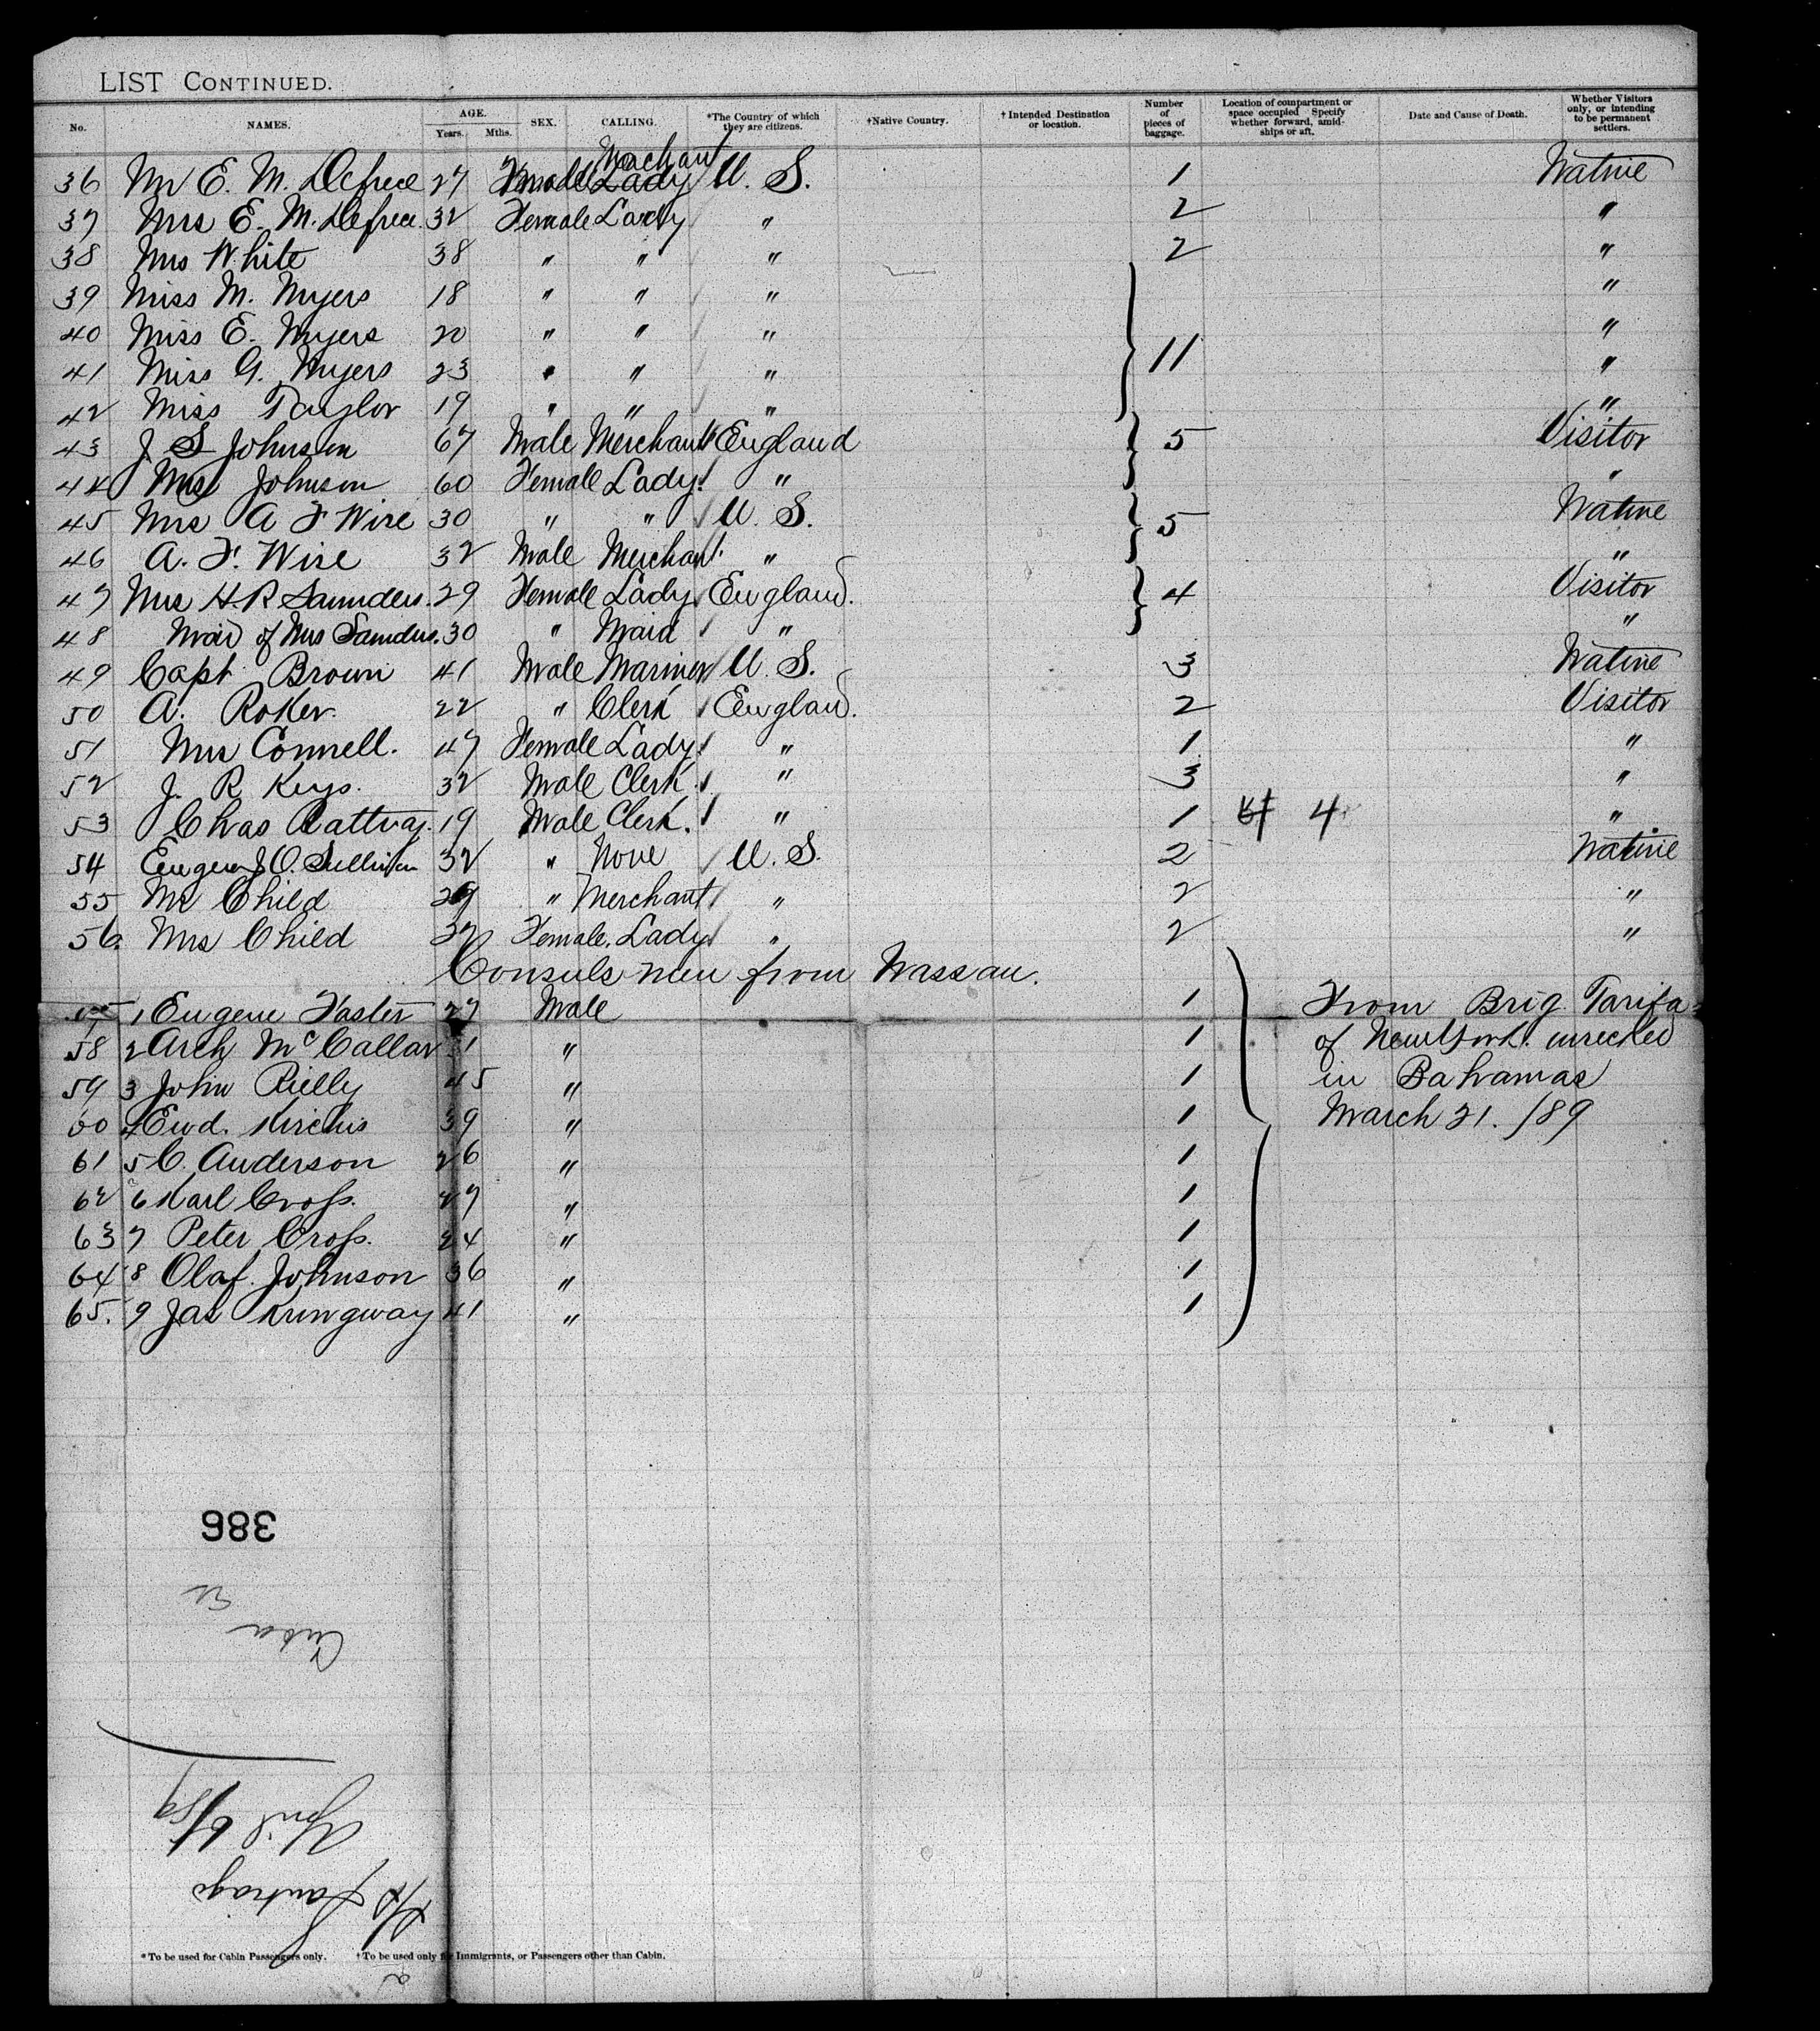 LIST CONTINUED.
No. NAMES. AGE. Years. Mths. SEX. CALLING. *The Country of which they are citizens. †Native Country. †Intended Destination or location. Number of pieces of baggage. Location of compartment or space occupied Specify whether forward, amidships or aft. Date and Cause of Death. Whether Visitors only, or intending to be permanent settlers.
36 Mr E. M. Defrece 27 Male Merchant U. S. 1 Native
37 Mrs E. M. Defrece. 32 Female Lady " 2 "
38 Mrs White 38 " " " 2 "
39 Miss M. Myers 18 " " " "
40 Miss E. Myers 20 " " " "
41 Miss G. Myers 23 " " " 11 "
42 Miss Taylor 19 " " " "
43 J S Johnson 67 Male Merchant England 5 Visitor
44 Mrs Johnson 60 Female Lady " "
45 Mrs A F Wise 30 " " U. S. 5 Native
46 A. F. Wise 32 Male Merchant " "
47 Mrs H R Saunders. 29 Female Lady England. 4 Visitor
48 Maid of Mrs Saunders. 30 " Maid " "
49 Capt Brown 41 Male Mariner U. S. 3 Native
50 A. Roker. 22 " Clerk England. 2 Visitor
51 Mrs Connell. 47 Female Lady " 1 "
52 J. R Keys. 32 Male Clerk " 3 "
53 Chas Rattray. 19 Male Clerk. " 1 4 "
54 Eugene J O. Sullivan 32 " None U. S. 2 Native
55 Mr Child 29 " Merchant " 2 "
56. Mrs Child 37 Female. Lady " 2 "
Consuls men from Nassau.
1 Eugene Faster 27 Male 1 From Brig Tarifa
58 2 Arch McCallar 31 " 1 of New York. wrecked
59 3 John Rielly 45 " 1 in Bahamas
60 4 Ewd. Kirchis 39 " 1 March 21. /89
61 5 C. Anderson 26 " 1
62 6 Karl Cross. 27 " 1
63 7 Peter Cross. 24 " 1
64 8 Olaf. Johnson 36 " 1
65. 9 Jas Kringway 41 " 1
386
Cuba
April 6/89
S/S Santiago
*To be used for Cabin Passengers only. †To be used only for Immigrants, or Passengers other than Cabin.